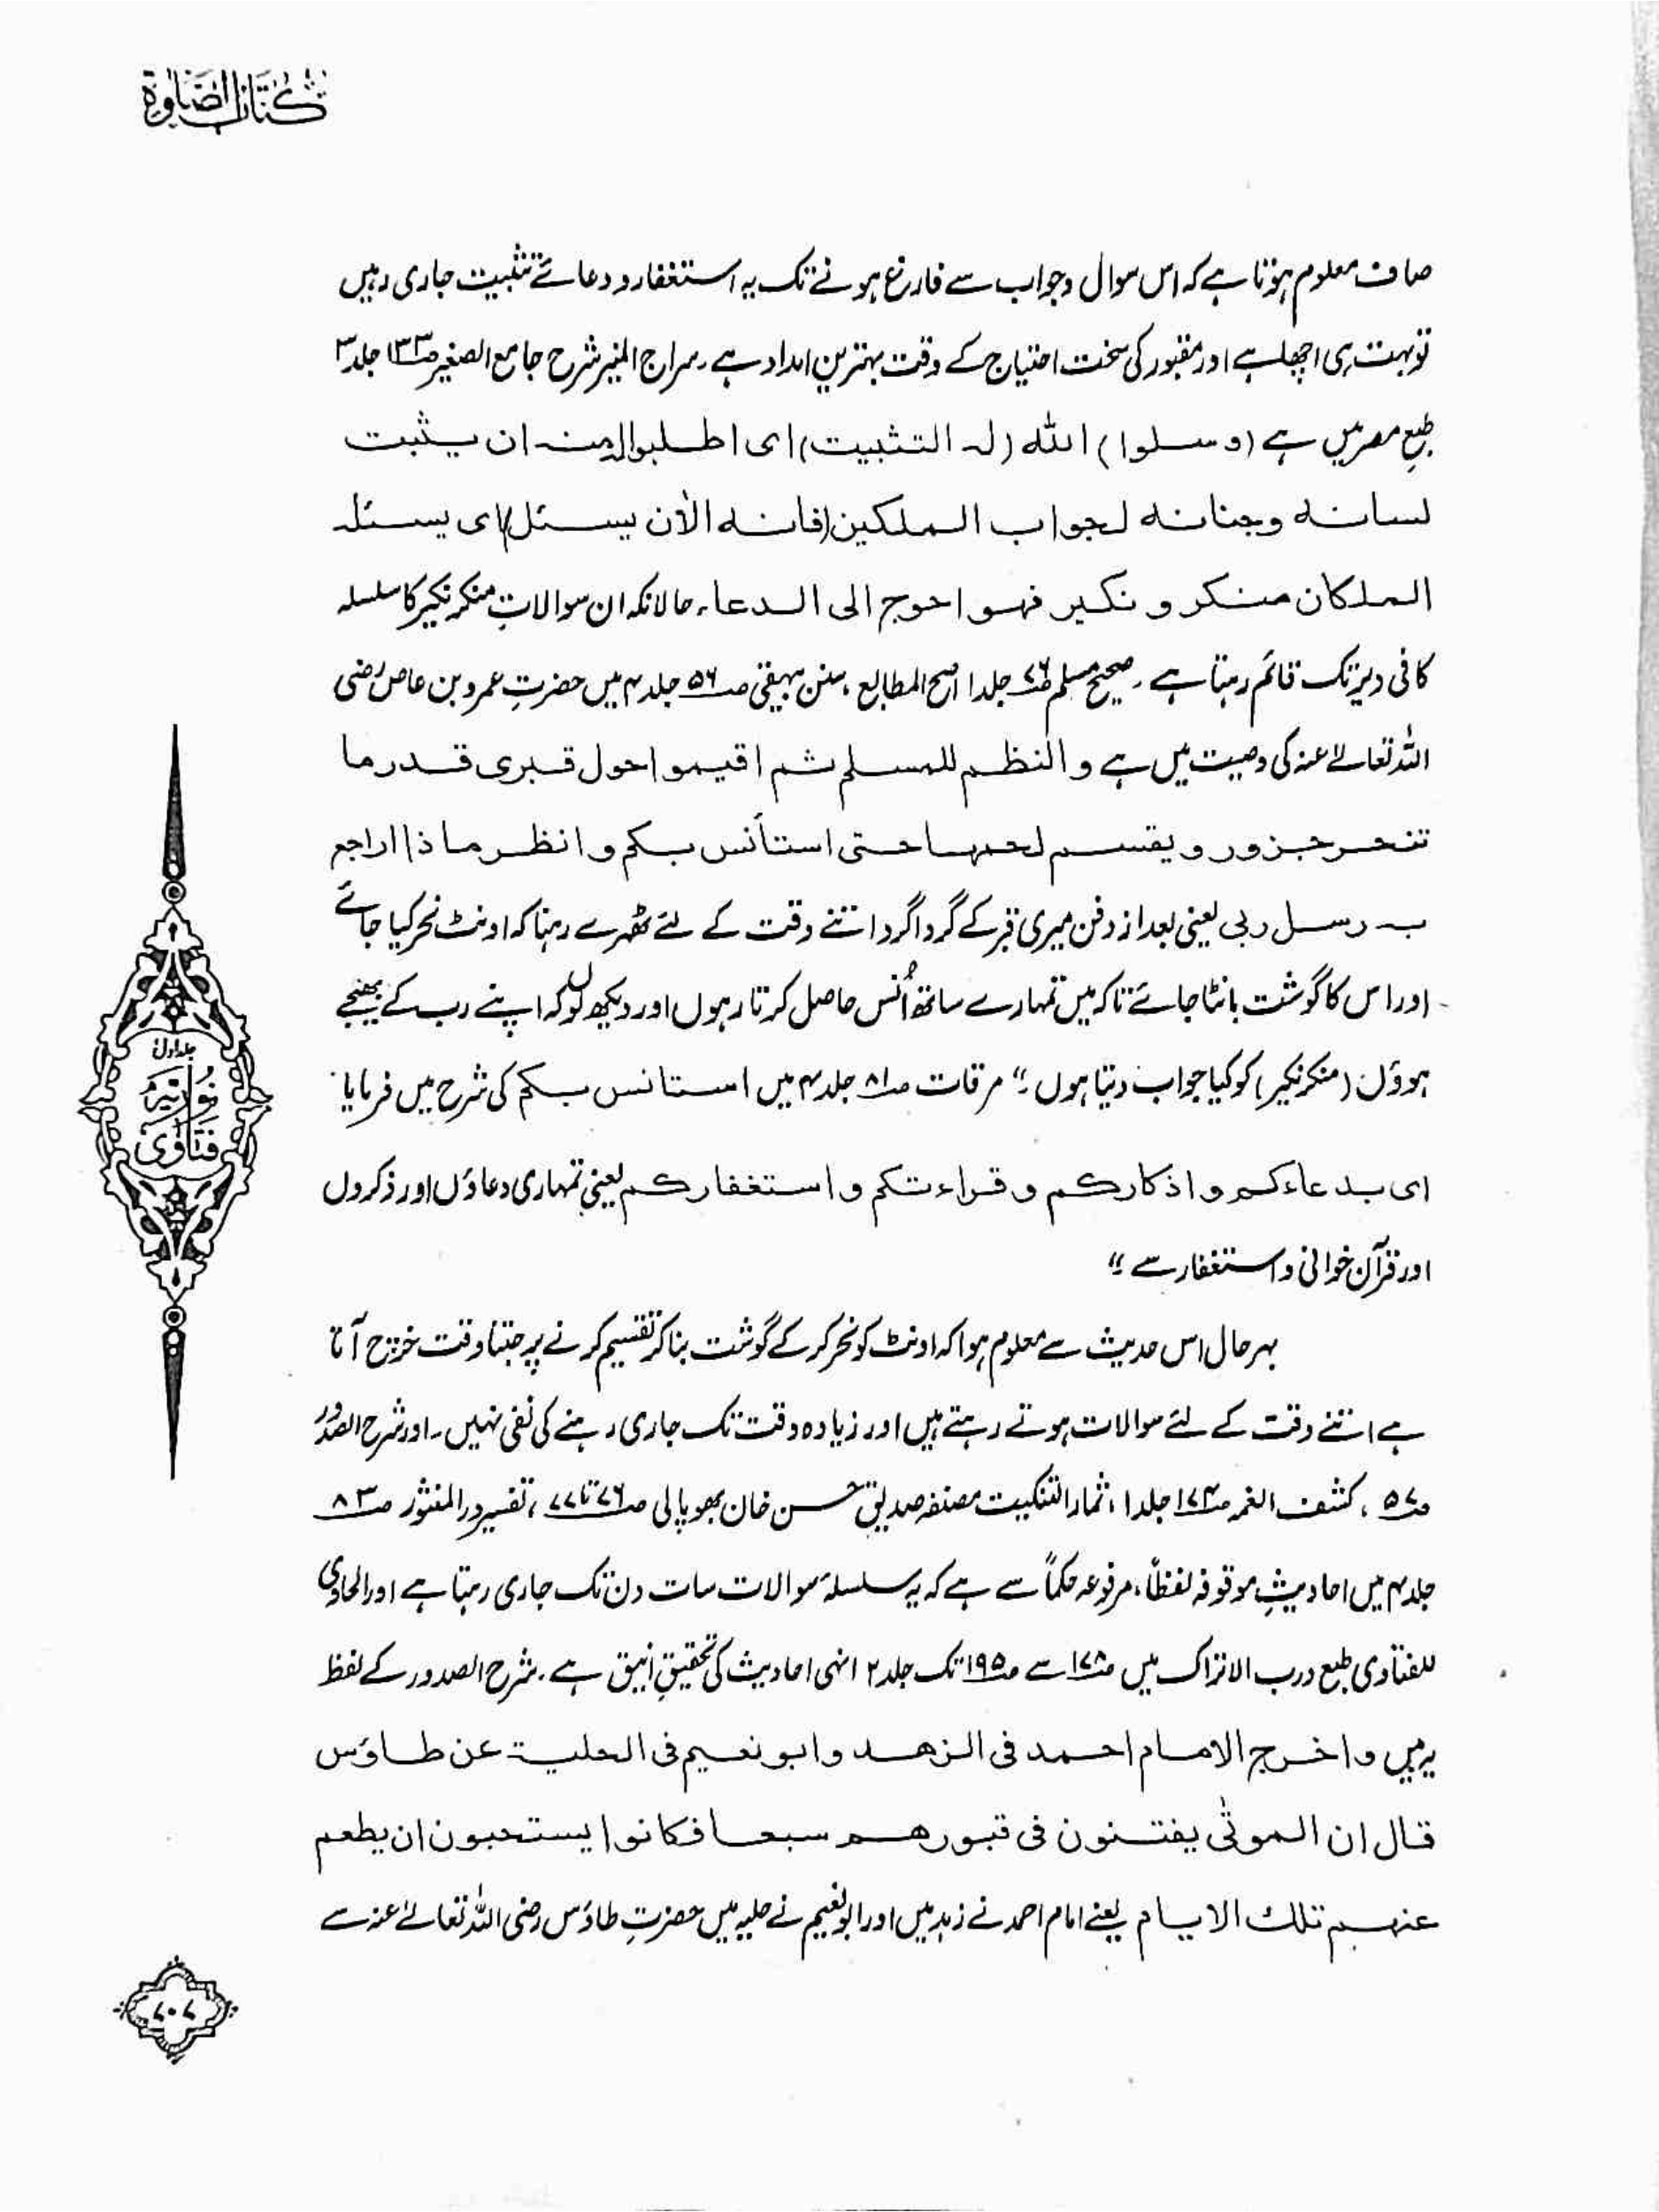 کتاب الصلوة
صاف معلوم ہوتا ہے کہ اس سوال وجواب سے فارغ ہونے تک یہ استغفار و دعائے تثبیت جاری رہیں
تو بہت ہی اچھا ہے اور مقبور کی سخت احتیاج کے وقت بہترین امداد ہے۔ سراج المنیر شرح جامع الصغیر ص۱۳۳ جلد۳
طبع مصر میں ہے (و سلوا) الله (له التثبیت) ای اطلبوا له منه ان یثبت
لسانه وجنانه لجواب الملکین (فانه الاٰن یسئل) ای یسئله
الملکان منکر و نکیر فهو احوج الی الدعاء، حالانکہ ان سوالاتِ منکر نکیر کا سلسلہ
کافی دیر تک قائم رہتا ہے۔ صحیح مسلم ص۷۶ جلد۱ اصح المطابع، سنن بیہقی ص۵۶ جلد۴ میں حضرتِ عمرو بن عاص رضی
اللہ تعالےٰ عنہ کی وصیت میں ہے والنظم للمسلم ثم اقیموا حول قبری قدر ما
تنحر جزور و یقسم لحمها حتی استأنس بکم و انظر ماذا اراجع
به رسل ربی یعنی بعد از دفن میری قبر کے گرداگرد اتنے وقت کے لئے ٹھہرے رہنا کہ اونٹ نحر کیا جائے
اور اس کا گوشت بانٹا جائے تاکہ میں تمہارے ساتھ اُنس حاصل کرتا رہوں اور دیکھ لوں کہ اپنے رب کے بھیجے
ہوؤں (منکر نکیر) کو کیا جواب دیتا ہوں۔" مرقات ص۸۱ جلد۴ میں استانس بکم کی شرح میں فرمایا
ای بدعاءکم و اذکارکم و قراءتکم و استغفارکم یعنی تمہاری دعاؤں اور ذکروں
اور قرآن خوانی و استغفار سے۔"
بہرحال اس حدیث سے معلوم ہوا کہ اونٹ کو نحر کر کے گوشت بنا کر تقسیم کرنے پر جتنا وقت خرچ آتا
ہے اتنے وقت کے لئے سوالات ہوتے رہتے ہیں اور زیادہ وقت تک جاری رہنے کی نفی نہیں۔ اور شرح الصدور
ص۵۷، کشف الغمہ ص۱۷۴ جلد۱، ثمار التنکیت مصنفہ صدیق حسن خان بھوپالی ص۷۶ تا ۷۷، تفسیر در المنثور ص۸۳
جلد۴ میں احادیثِ موقوفہ لفظاً، مرفوعہ حکماً سے ہے کہ یہ سلسلۂ سوالات سات دن تک جاری رہتا ہے اور الحاوی
للفتاوی طبع درب الاتراک میں ص۱۷۸ سے ص۱۹۵ تک جلد۲ انہی احادیث کی تحقیقِ انیق ہے۔ شرح الصدور کے لفظ
یہ ہیں واخرج الامام احمد فی الزهد وابو نعیم فی الحلیة عن طاؤس
قال ان الموتٰی یفتنون فی قبورهم سبعا فکانوا یستحبون ان یطعم
عنهم تلك الایام یعنے امام احمد نے زہد میں اور ابو نعیم نے حلیہ میں حضرتِ طاؤس رضی اللہ تعالےٰ عنہ سے
جلد اول
نوریہ
فتاوی
۷۰۷